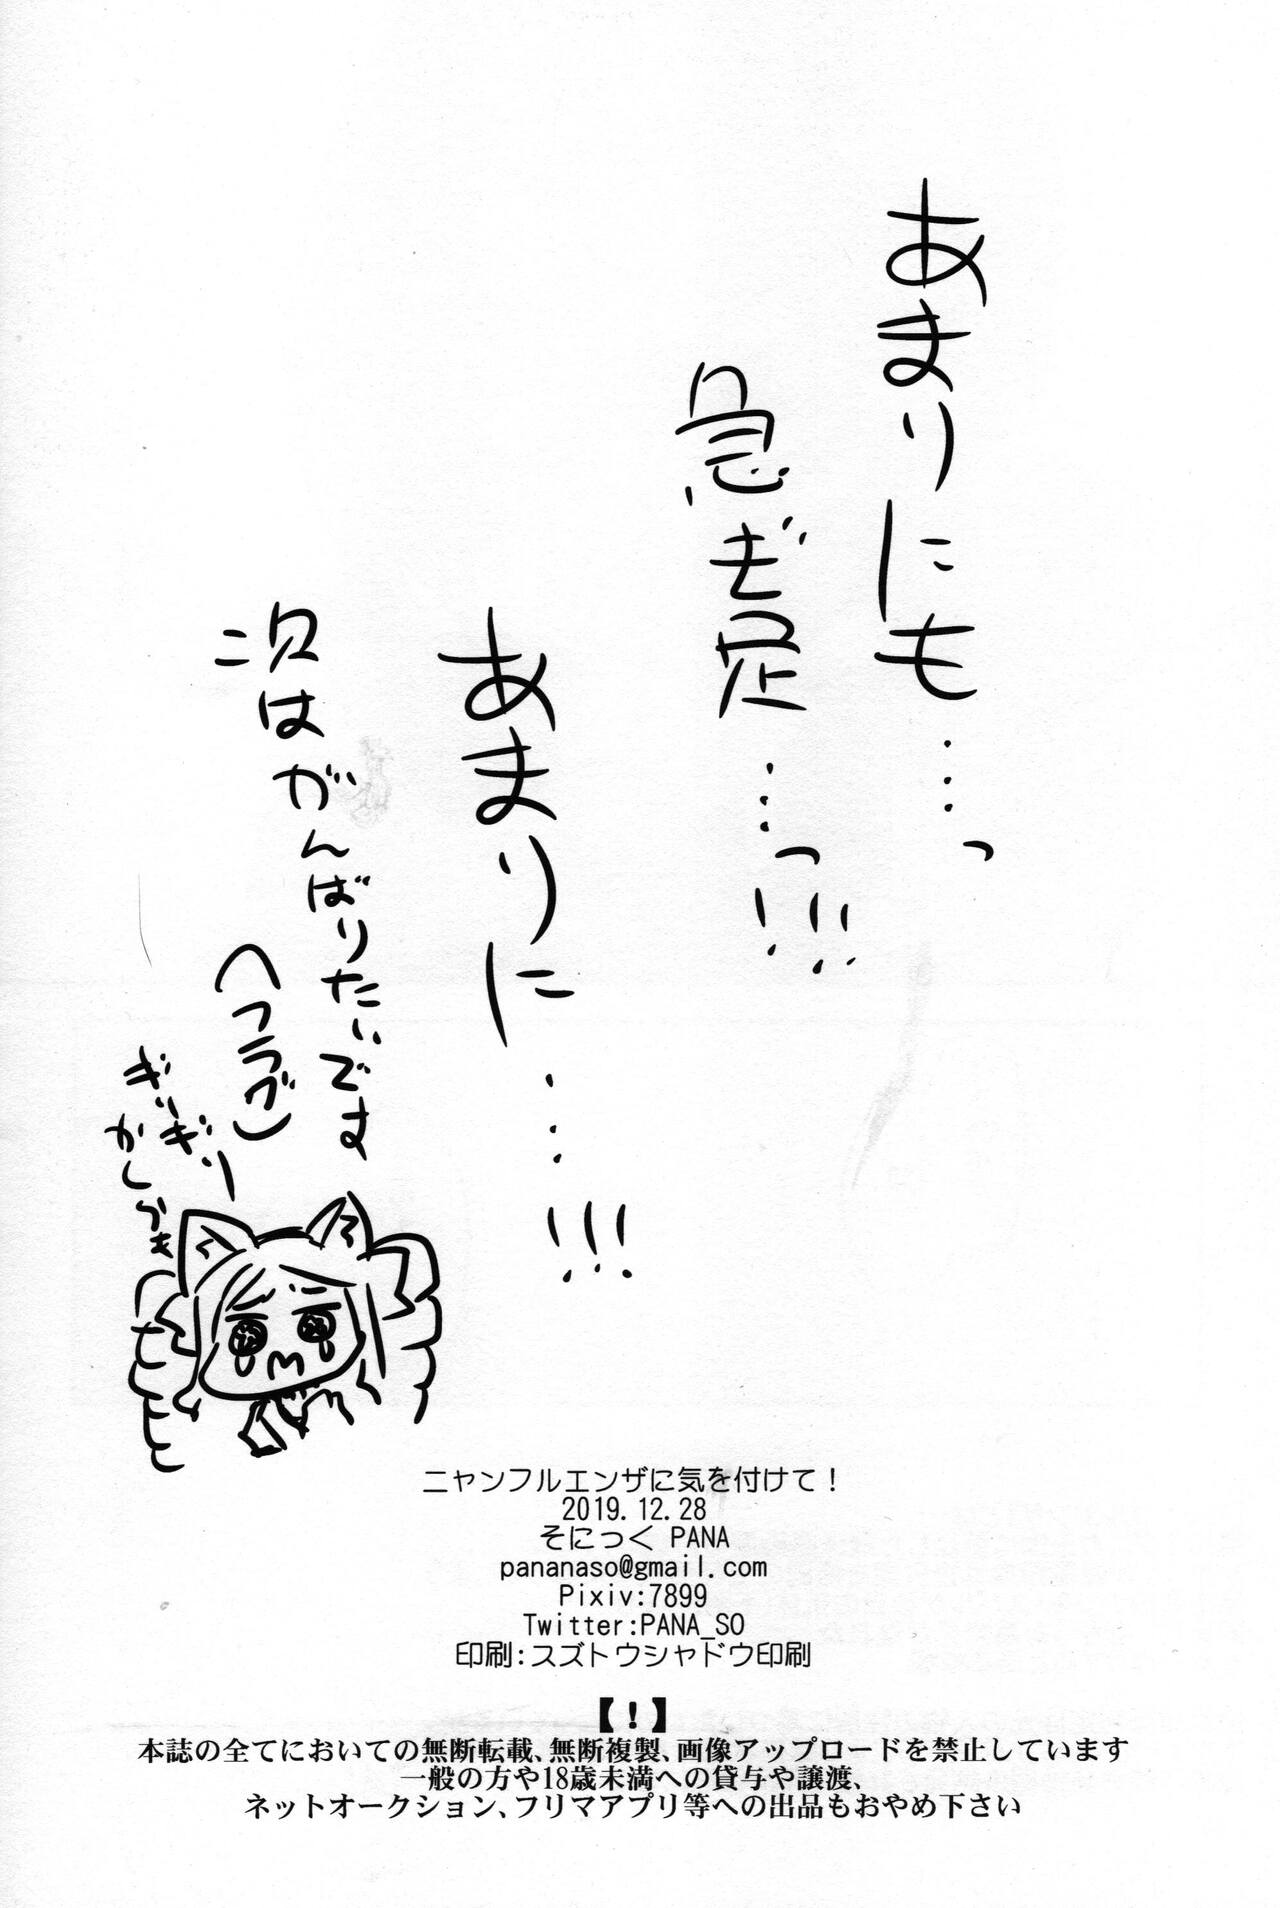 あまりにも…っ
急ぎ足…っ!!!
あまりに…!!!
次はがんばりたいです
(フラグ)
ぎりぎり
ニャンフルエンザに気を付けて！
2019.12.28
そにっく PANA
pananaso@gmail.com
Pixiv:7899
Twitter:PANA_SO
印刷:スズトウシャドウ印刷
【！】
本誌の全てにおいての無断転載、無断複製、画像アップロードを禁止しています
一般の方や18歳未満への貸与や譲渡、
ネットオークション、フリマアプリ等への出品もおやめ下さい